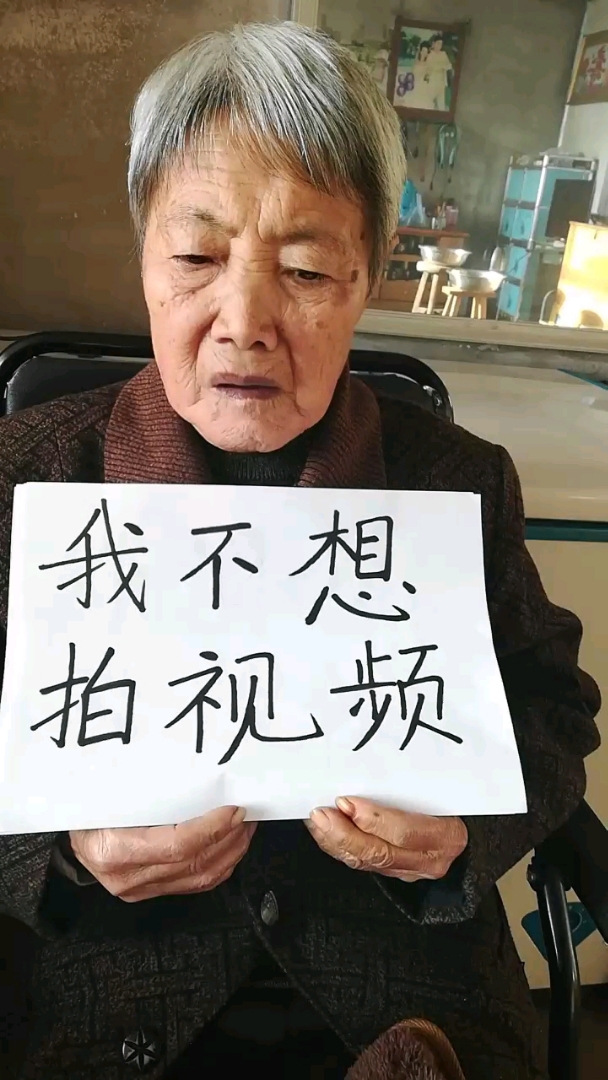 我不想
拍视频